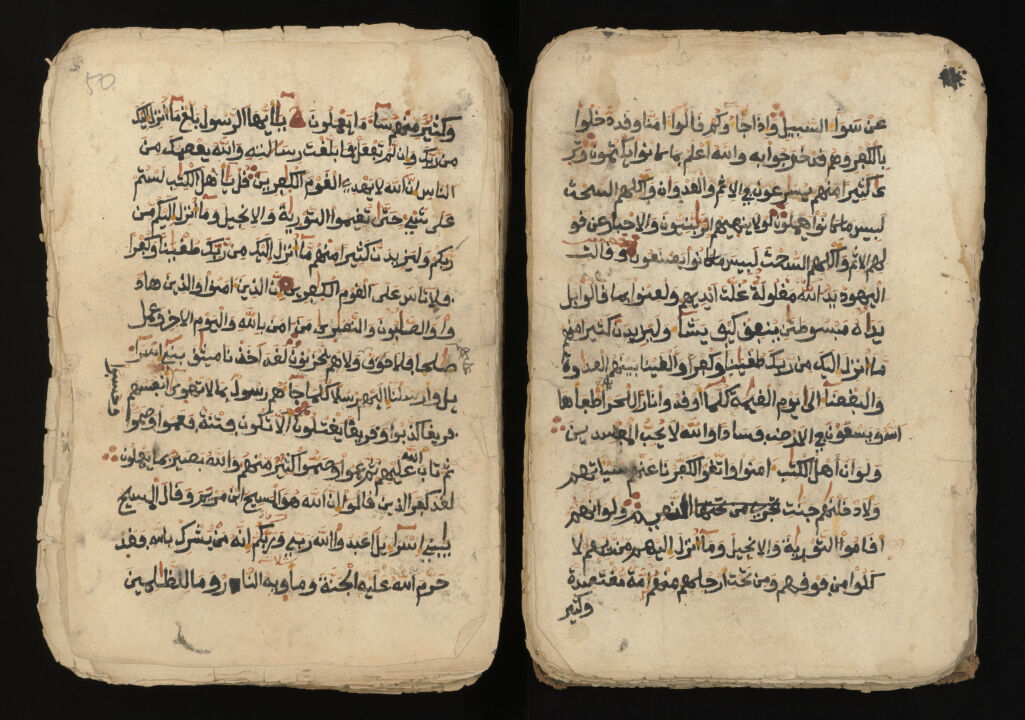 عن سوا السبيل واذا جاوكم قالوا امنا وقد دخلوا
بالكفر وهم قد خرجوا به والله اعلم بما كانوا يكتمون وتر
ى كثيرا منهم يسرعون في الاثم والعدوان واكلهم السحت
لبيس ما كانوا يعملون لولا ينهيهم الربنيون والاحبار عن قو
لهم الاثم واكلهم السحت لبيس ما كانوا يصنعون وقالت
اليهود يد الله مغلولة غلت ايديهم ولعنوا بما قالوا بل
يداه مبسوطتن ينفق كيف يشا وليزيدن كثيرا منهم
ما انزل اليك من ربك طغينا وكفرا والقينا بينهم العدوة
والبغضا الى يوم القيمة كلما اوقدوا نارا للحرب اطفاها
الله ويسعون في الارض فسادا والله لا يحب المفسدين
ولو ان اهل الكتب امنوا واتقوا لكفرنا عنهم سياتهم
ولادخلنهم جنت النعيم ولو انهم
اقاموا التورية والانجيل وما انزل اليهم من ربهم لا
كلوا من فوقهم ومن تحت ارجلهم منهم امة مقتصدة
وكثير
50
وكثير منهم سا ما يعملون يايها الرسول بلغ ما انزل اليك
من ربك وان لم تفعل فما بلغت رسالته والله يعصمك من
الناس ان الله لا يهدي القوم الكفرين قل ياهل الكتب لستم
على شي حتى تقيموا التورية والانجيل وما انزل اليكم من
ربكم وليزيدن كثيرا منهم ما انزل اليك من ربك طغينا وكفرا
فلا تاس على القوم الكفرين ان الذين امنوا والذين هاد
وا والصابون والنصرى من امن بالله واليوم الاخر وعمل
صلحا فلا خوف ولا هم يحزنون لقد اخذنا ميثق بني اسرا
يل وارسلنا اليهم رسلا كلما جاهم رسول بما لا تهوى انفسهم
فريقا كذبوا وفريقا يقتلون الا تكون فتنة فعموا وصموا
ثم تاب الله عليهم ثم عموا وصموا كثير منهم والله بصير بما يعملون
لقد كفر الذين قالوا ان الله هو المسيح ابن مريم وقال المسيح
يبني اسرايل اعبدوا الله ربي وربكم انه من يشرك بالله فقد
حرم الله عليه الجنة وماويه النار وما للظلمين